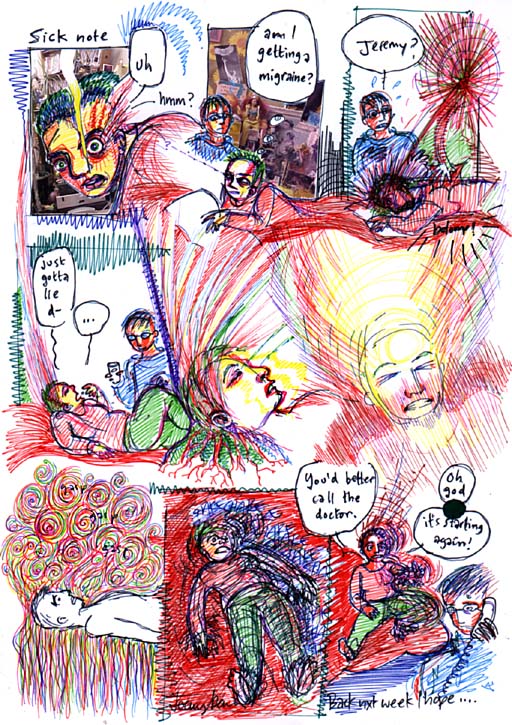 Sick note
uh
hmm?
am I
getting a
migraine?
Jeremy?
just
gotta
lie
d-
...
You'd better
call the
doctor.
Oh
god
it's starting
again!
Back next week I hope ....